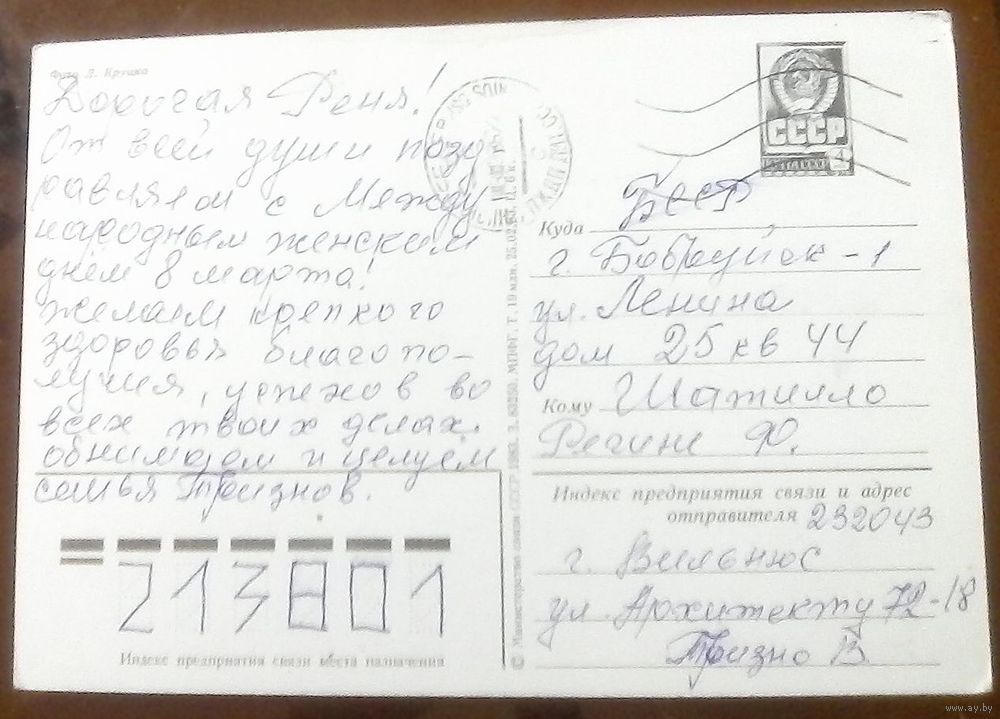 Фото Л. Круцко
Дорогая Реня!
От всей души позд
равляем с Между
народным женским
днём 8 марта!
желаем крепкого
здоровья благопо-
лучия, успехов во
всех твоих делах.
обнимаем и целуем
семья Тризнов.
213801
Индекс предприятия связи места назначения
© Министерство связи СССР 1983. З. 83250. МПФГ. Т. 19 млн. 25.02.83. Ц. 6 к.
СССР
Куда БССР
г. Бобруйск-1
ул. Ленина
дом 25 кв 44
Кому Шатилло
Регине Ф.
Индекс предприятия связи и адрес
отправителя 232043
г. Вильнюс
ул. Архитекту 72-18
Тризно В.
www.ay.by